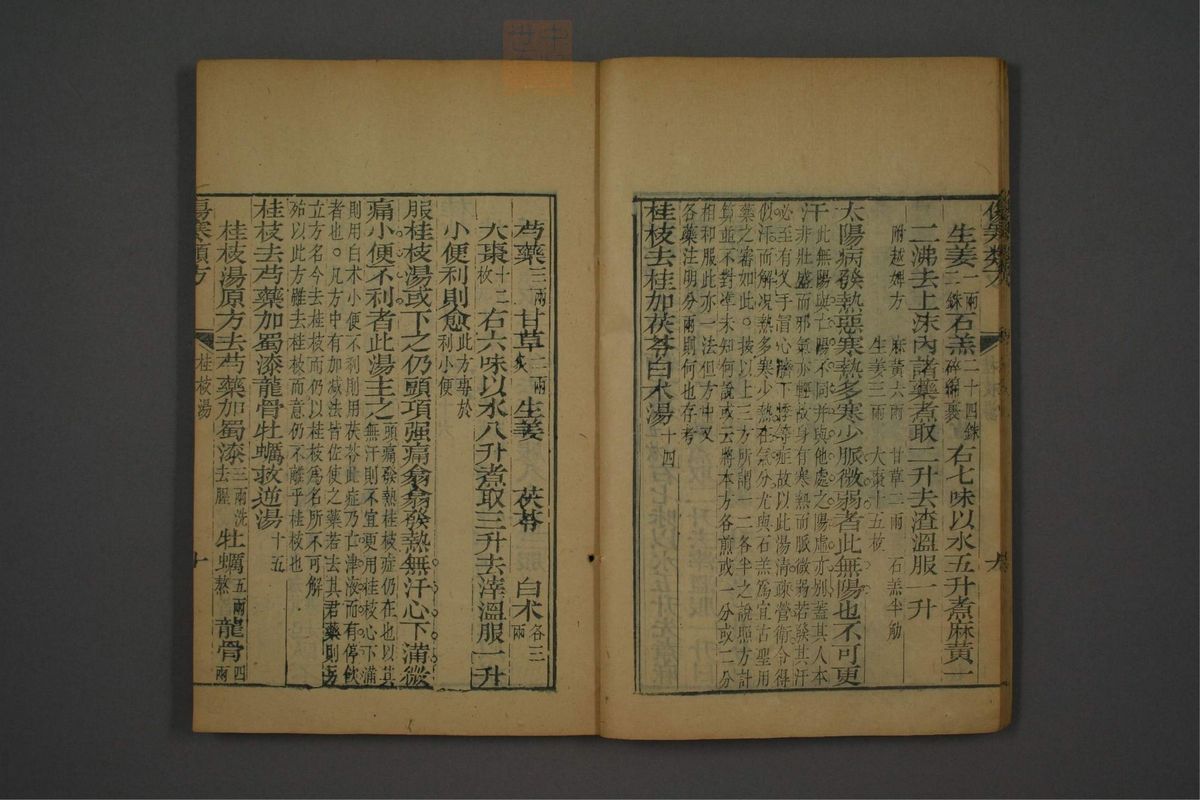 生姜一兩二銖石羔二十四銖碎綿裹右七味以水五升煮麻黃一
二沸去上沫內諸藥煮取二升去渣溫服一升
附越婢方　麻黃六兩　甘草二兩　石羔半觔
生姜三兩　大棗十五枚
太陽病發熱惡寒熱多寒少脈微弱者此無陽也不可更
汗此無陽與亡陽不同并與他處之陽虛亦別蓋其人本
汗非壯盛而邪氣亦輕故身有寒熱而脈微弱若發其汗
必至有叉手冒心臍下悸等症故以此湯清疎營衛令得
似汗而解况熱多寒少熱在氣分尤與石羔爲宜古聖用
藥之審如此。按以上三方所謂一二各半之說照方計
算並不對準未知何說或云將本方各煎或一分或二分
相和服此亦一法但方中又
各藥注明分兩則何也存考
桂枝去桂加茯苓白朮湯十四
傷寒類方
桂枝湯
十
芍藥三兩甘草二兩炙　生姜　茯苓　白朮各三兩
大棗十二枚右六味以水八升煮取三升去滓溫服一升
小便利則愈此方專於利小便
服桂枝湯或下之仍頭項强痛翕翕發熱無汗心下滿微
痛小便不利者此湯主之頭痛發熱桂枝症仍在也以其無汗則不宜更用桂枝心下滿
則用白朮小便不利則用茯苓此症乃亡津液而有停飲
者也。凡方中有加减法皆佐使之藥若去其君藥則另
立方名今去桂枝而仍以桂枝爲名所不可解
殆以此方雖去桂枝而意仍不離乎桂枝也
桂枝去芍藥加蜀漆龍骨牡蠣救逆湯十五
桂枝湯原方去芍藥加蜀漆三兩洗去腥　牡蠣五兩熬龍骨四兩
傷寒類方
桂枝湯
十